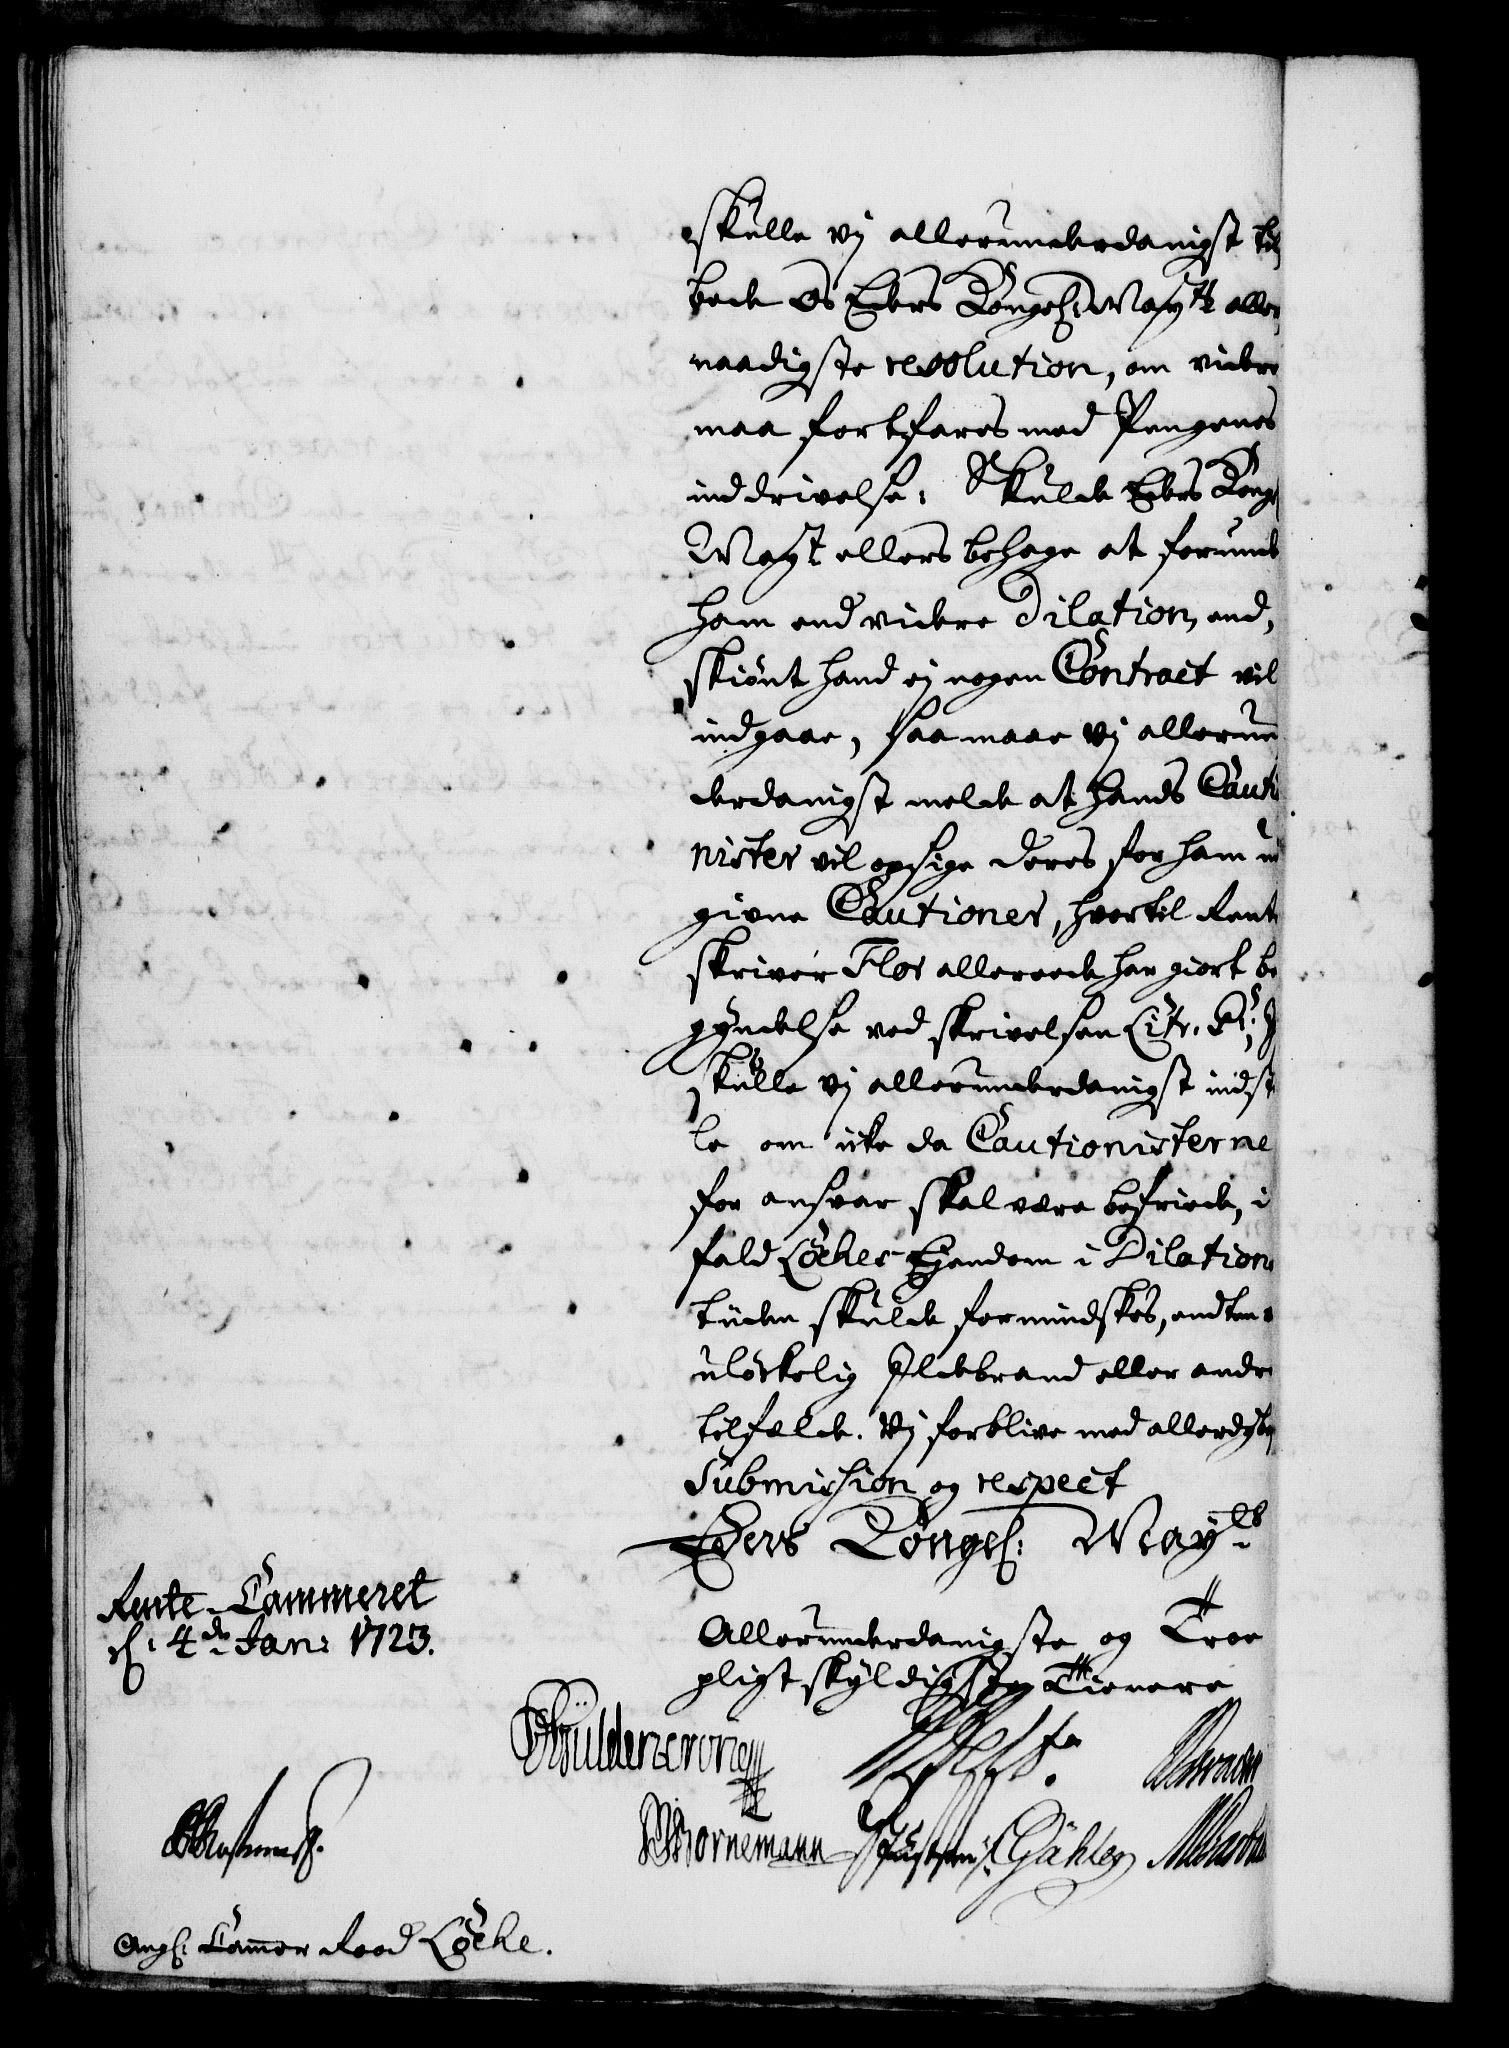 skulle vj allerunderdanigst til
bede Os Eders Kongel: Mayts aller
naadigste resolution, om videre
maa fortfares med Pengenes
inddrivelse: Skulde Eders Kongl
Mayt ellers behage at forunde
ham end videre Dilation, end,
skiönt hand ej nogen Contract vil
indgaae, saa maae Vj allerun
derdanigst melde at hands Cauti
nister vil opsige deres for ham ud
givne Cautioner, hvortil Rente
skriver Flor allereede har giort be
gyndelse ved skrivelsen Litr.
skulle vj allerunderdanigst indst
le om icke da Cautionisterne
for ansvar skal være befriede, i
fald Löckes Ejendom i Dilations
tiiden skulde formindskes, endten
ulöckelig Ildebrand eller andre
tilfælde. Vj forblive med allerdybs
Submission og respect
Eders Kongel: Mayts
Rente-Cammeret
d: 4de Jan: 1723.
Allerunderdanigste og Troe
pligtskyldigste Tienere
Güldencrone
Bornemann Gähler
Angl: Cammer Raad Löcke.